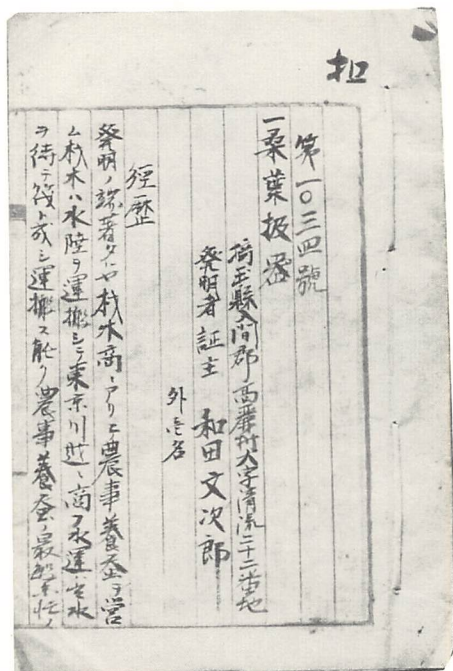 扣
第一〇三四號
一桑葉扱器
埼玉縣入間郡高麗村大字清流二十二番地
発明者証主 和田文次郎
外壱名
経歴
発明ノ端著タルヤ材木商ニアリテ農事養蚕ヲ営
ム材木ハ水陸ヲ運搬シテ東京川辺ニ商フ水運ハ出水
ヲ待テ筏ト成シ運搬ス能ク農事養蚕ノ最